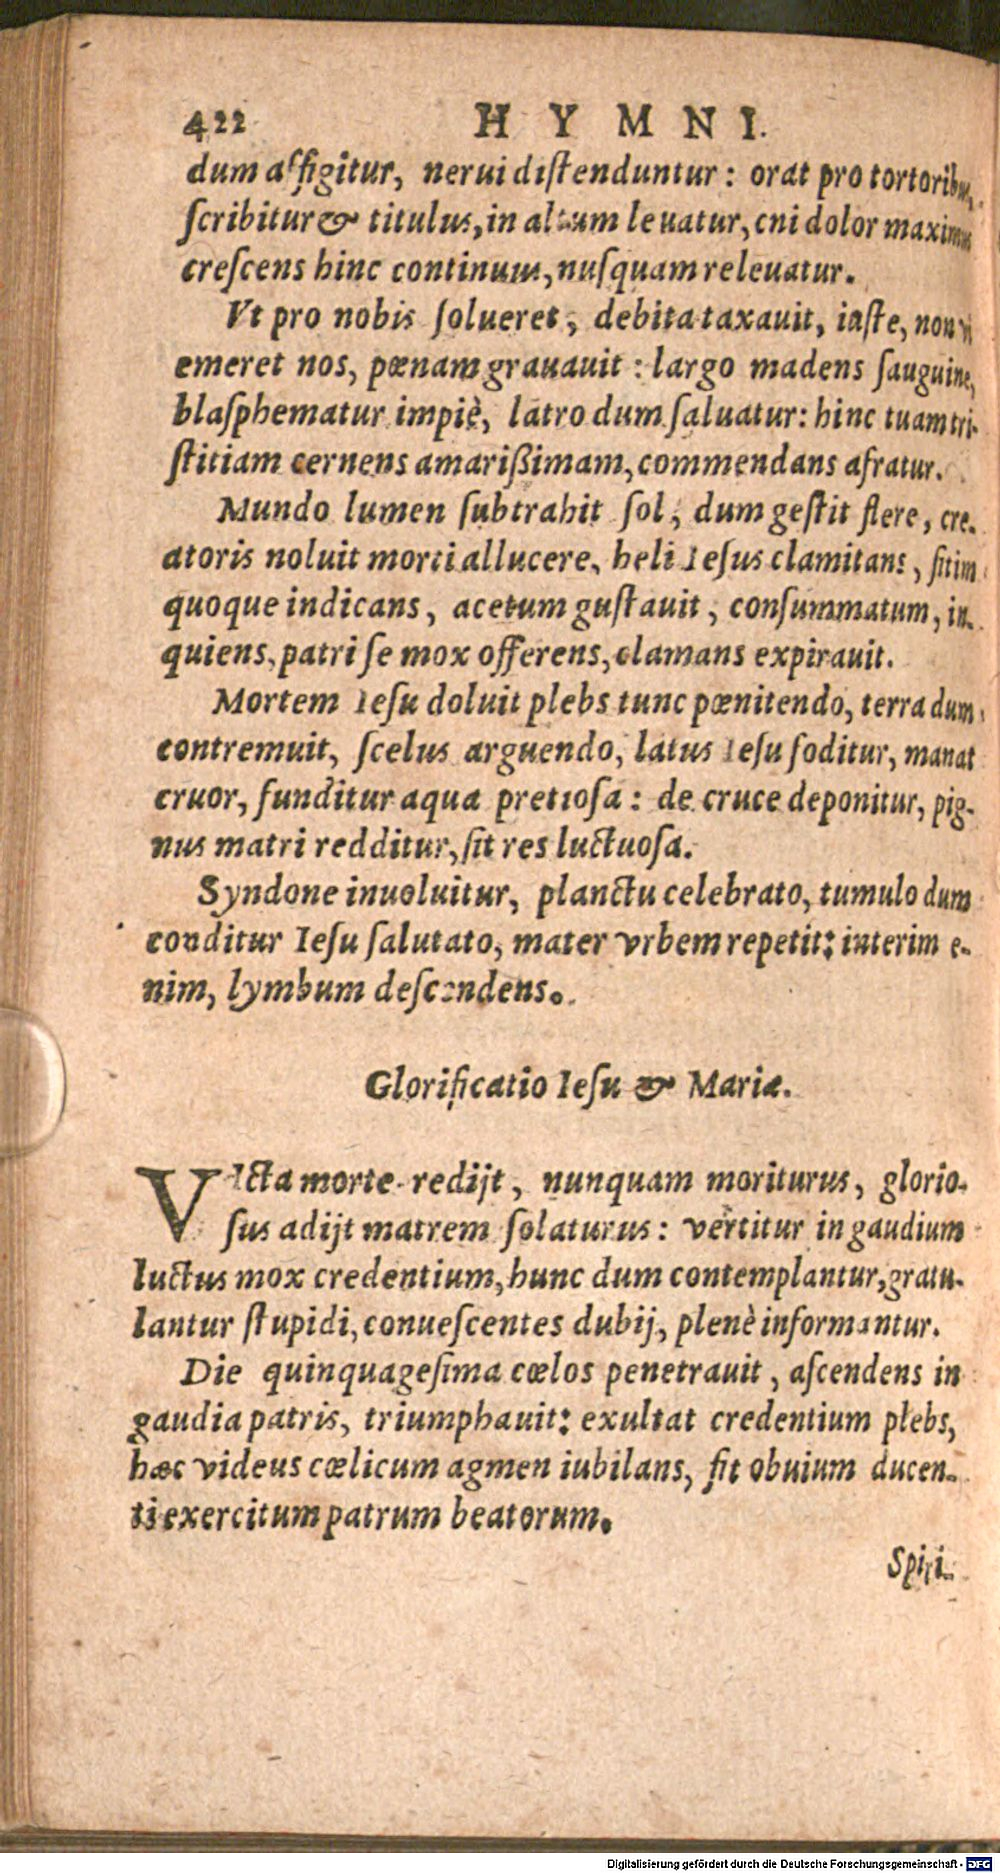 422 HYMNI.
dum aſfigitur, nerui diſtenduntur: orat pro tortoribus,
ſcribitur & titulus, in altum leuatur, cni dolor maximus
creſcens hinc continuus, nuſquam releuatur.
Vt pro nobis ſolueret, debita taxauit, iaſte, non vi
emeret nos, pœnam grauauit: largo madens ſauguine,
blaſphematur impiè, latro dum ſaluatur: hinc tuam tri-
ſtitiam cernens amarißimam, commendans afratur.
Mundo lumen ſubtrahit ſol, dum geſtit flere, cre-
atoris noluit morti allucere, heli Ieſus clamitans, ſitim
quoque indicans, acetum guſtauit, conſummatum, in-
quiens, patri ſe mox offerens, clamans expirauit.
Mortem Ieſu doluit plebs tunc pœnitendo, terra dum
contremuit, ſcelus arguendo, latus Ieſu foditur, manat
cruor, funditur aqua pretioſa: de cruce deponitur, pig-
nus matri redditur, ſit res luctuoſa.
Syndone inuoluitur, planctu celebrato, tumulo dum
conditur Ieſu ſalutato, mater vrbem repetit: interim e-
nim, lymbum deſcendens.
Glorificatio Ieſu & Mariæ.
VIcta morte redijt, nunquam moriturus, glorio-
ſus adijt matrem ſolaturus: vertitur in gaudium
luctus mox credentium, hunc dum contemplantur, gratu-
lantur ſtupidi, conueſcentes dubij, plenè informantur.
Die quinquageſima cœlos penetrauit, aſcendens in
gaudia patris, triumphauit: exultat credentium plebs,
hæc videus cœlicum agmen iubilans, fit obuium ducen-
ti exercitum patrum beatorum.
Spiri-
Digitalisierung gefördert durch die Deutsche Forschungsgemeinschaft - DFG